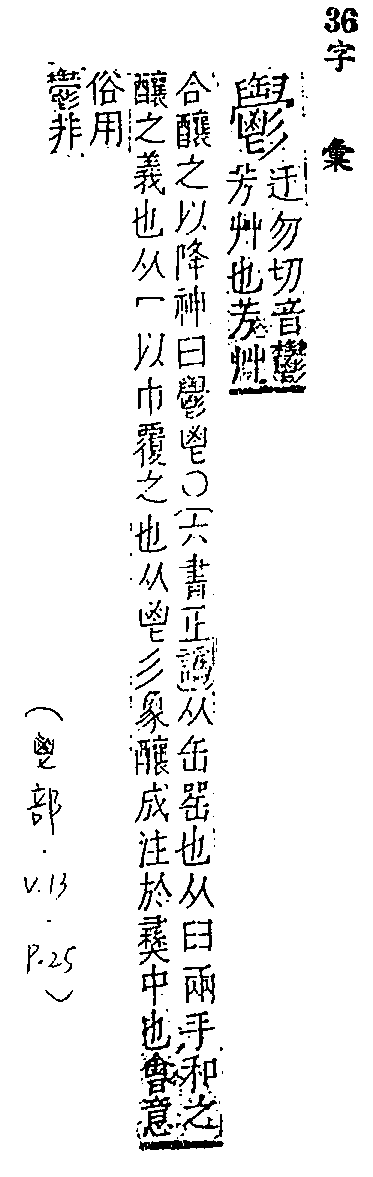 36字彙
鬱
迂勿切音鬱
芳艸也芳艸
合釀之以降神曰鬱鬯○六書正譌从缶器也从臼兩手和之
釀之義也从冖以巾覆之也从鬯彡象釀成注於彝中也會意
俗用
鬱非
(鬯部.V.13.P.25)